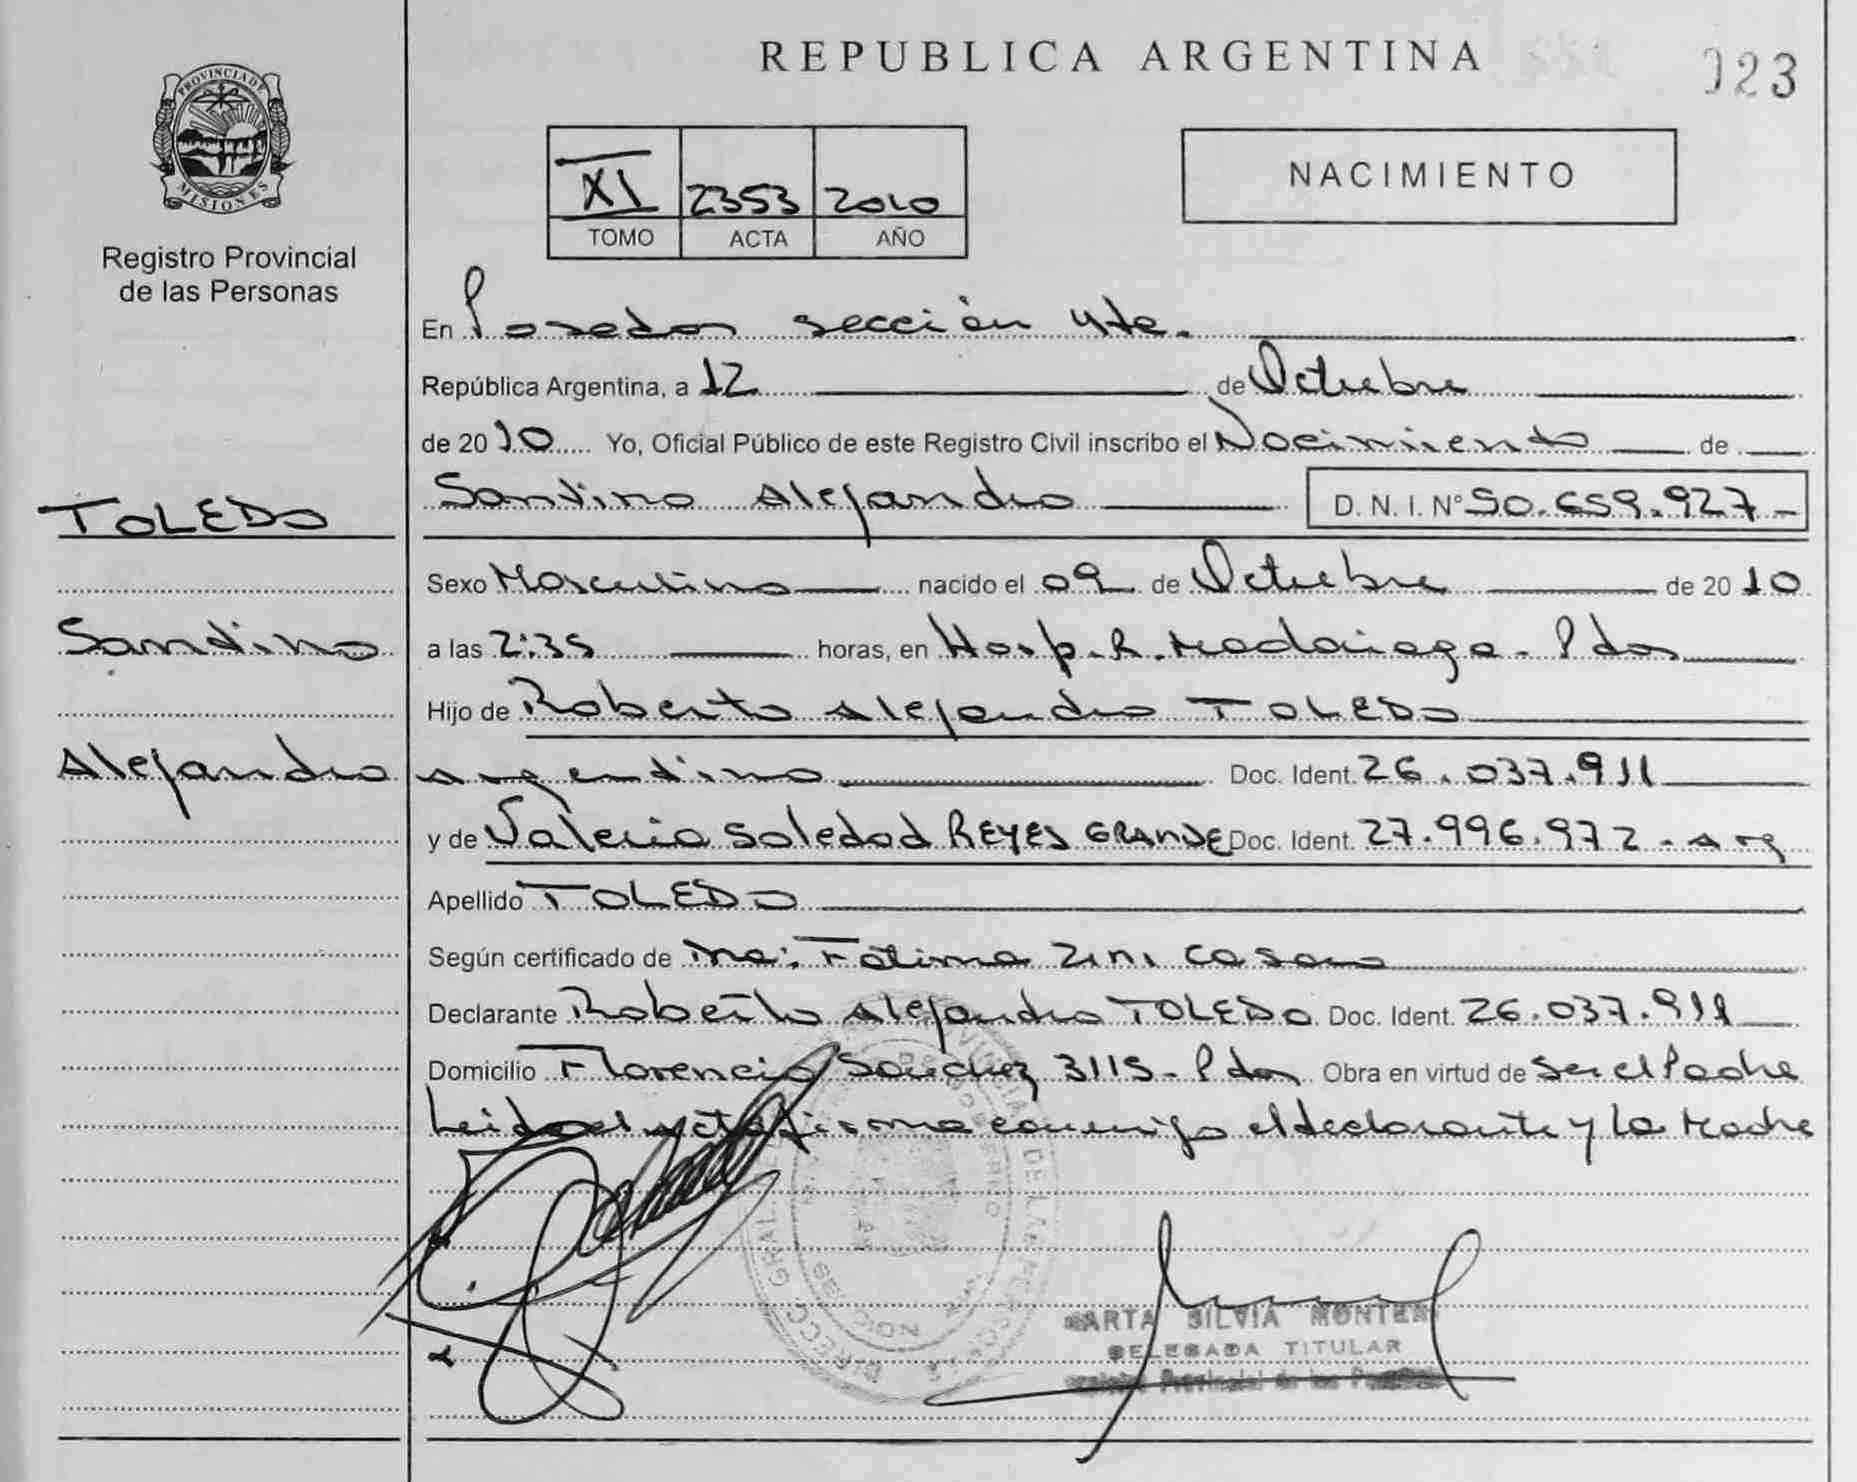 REPUBLICA ARGENTINA
023
PROVINCIA DE
MISIONES
Registro Provincial
de las Personas
XI 2353 2010
TOMO ACTA AÑO
NACIMIENTO
En Posadas sección 4ta.
República Argentina, a 12 de Octubre
de 2010 Yo, Oficial Público de este Registro Civil inscribo el Nacimiento de
Santino Alejandro D. N. I. N° 50.659.927-
TOLEDO
Santino
Alejandro
Sexo Masculino nacido el 09 de Octubre de 2010
a las 2:35 horas, en Hosp. R. Madariaga - Pdas
Hijo de Roberto Alejandro TOLEDO
argentino Doc. Ident. 26.037.911
y de Valeria Soledad REYES GRANDE Doc. Ident. 27.996.972 - arg
Apellido TOLEDO
Según certificado de Ma: Fátima Zini Casaro
Declarante Roberto Alejandro TOLEDO Doc. Ident. 26.037.911
Domicilio Florencio Sánchez 3115 - Pdas Obra en virtud de ser el Padre
Leida el acta firma conmigo el declarante y la Madre
SILVIA MONTE
DELEGADA TITULAR
Provincial de las